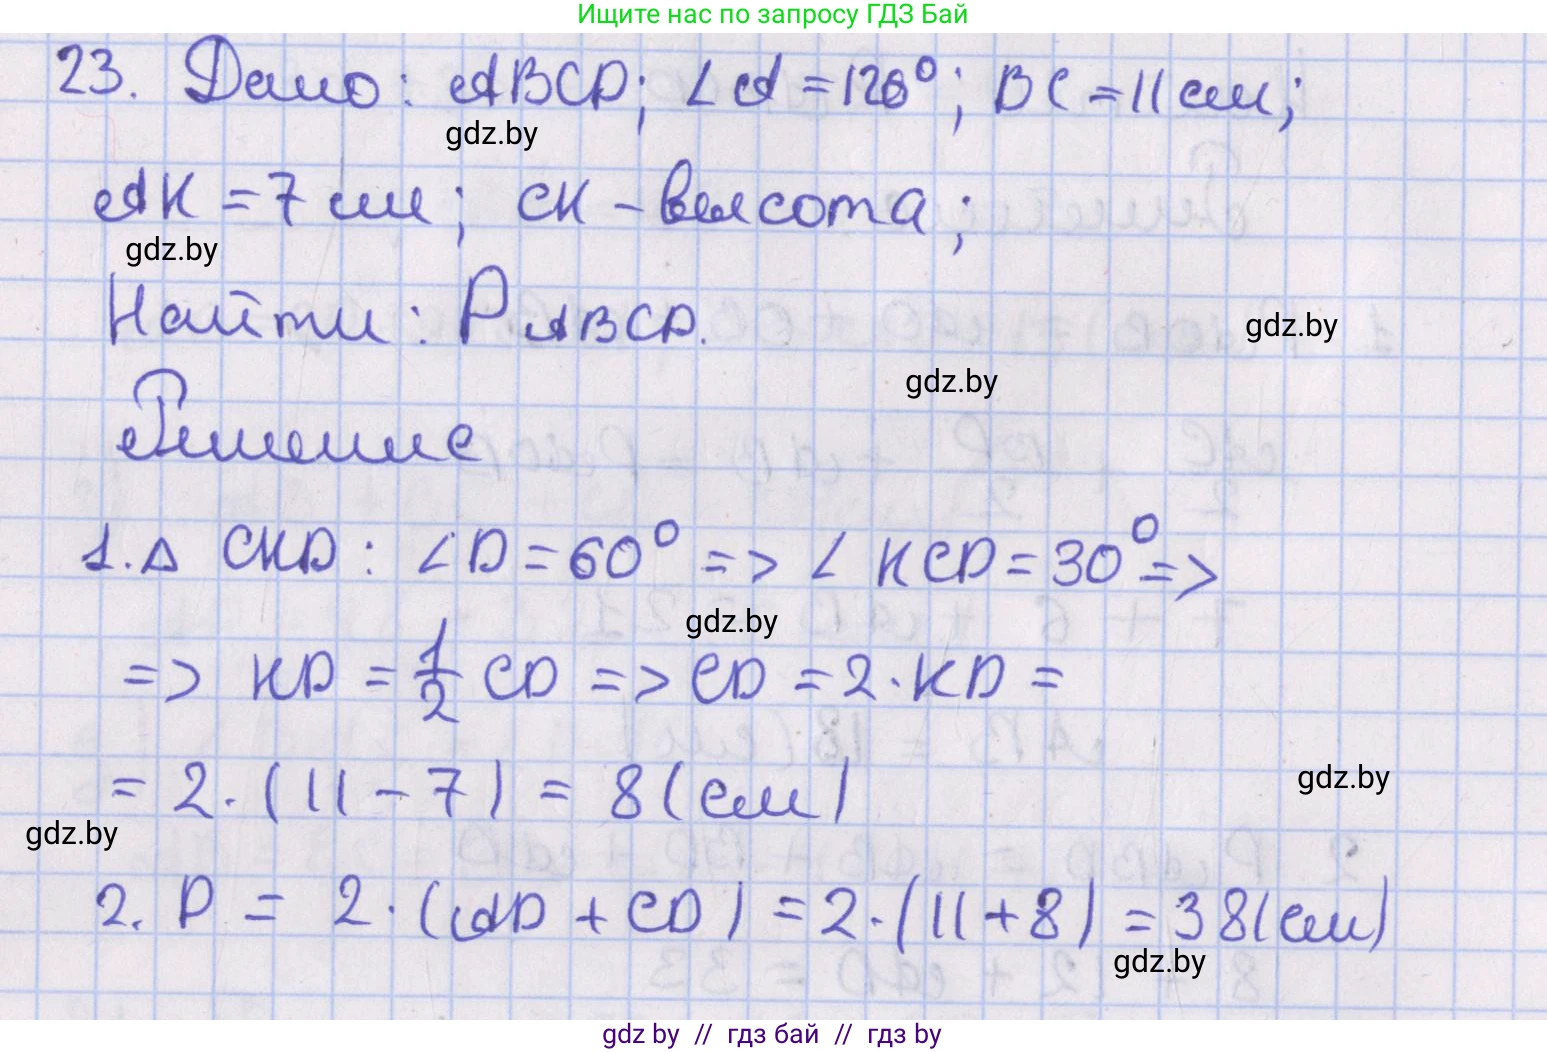 Ищите нас по запросу ГДЗ Бай
23. Дано: ABCD; ∠A = 120°; BC = 11 см;
gdz.by
AK = 7 см; CK – высота;
gdz.by
Найти: P ABCD.
gdz.by
gdz.by
Решение
1. Δ CKD: ∠D = 60° => ∠KCD = 30° =>
gdz.by
=> KD = 1/2 CD => CD = 2·KD =
= 2·(11 – 7) = 8 (см)
gdz.by
gdz.by
2. P = 2·(AD + CD) = 2·(11 + 8) = 38 (см)
gdz.by
gdz by // гдз бай // гдз by